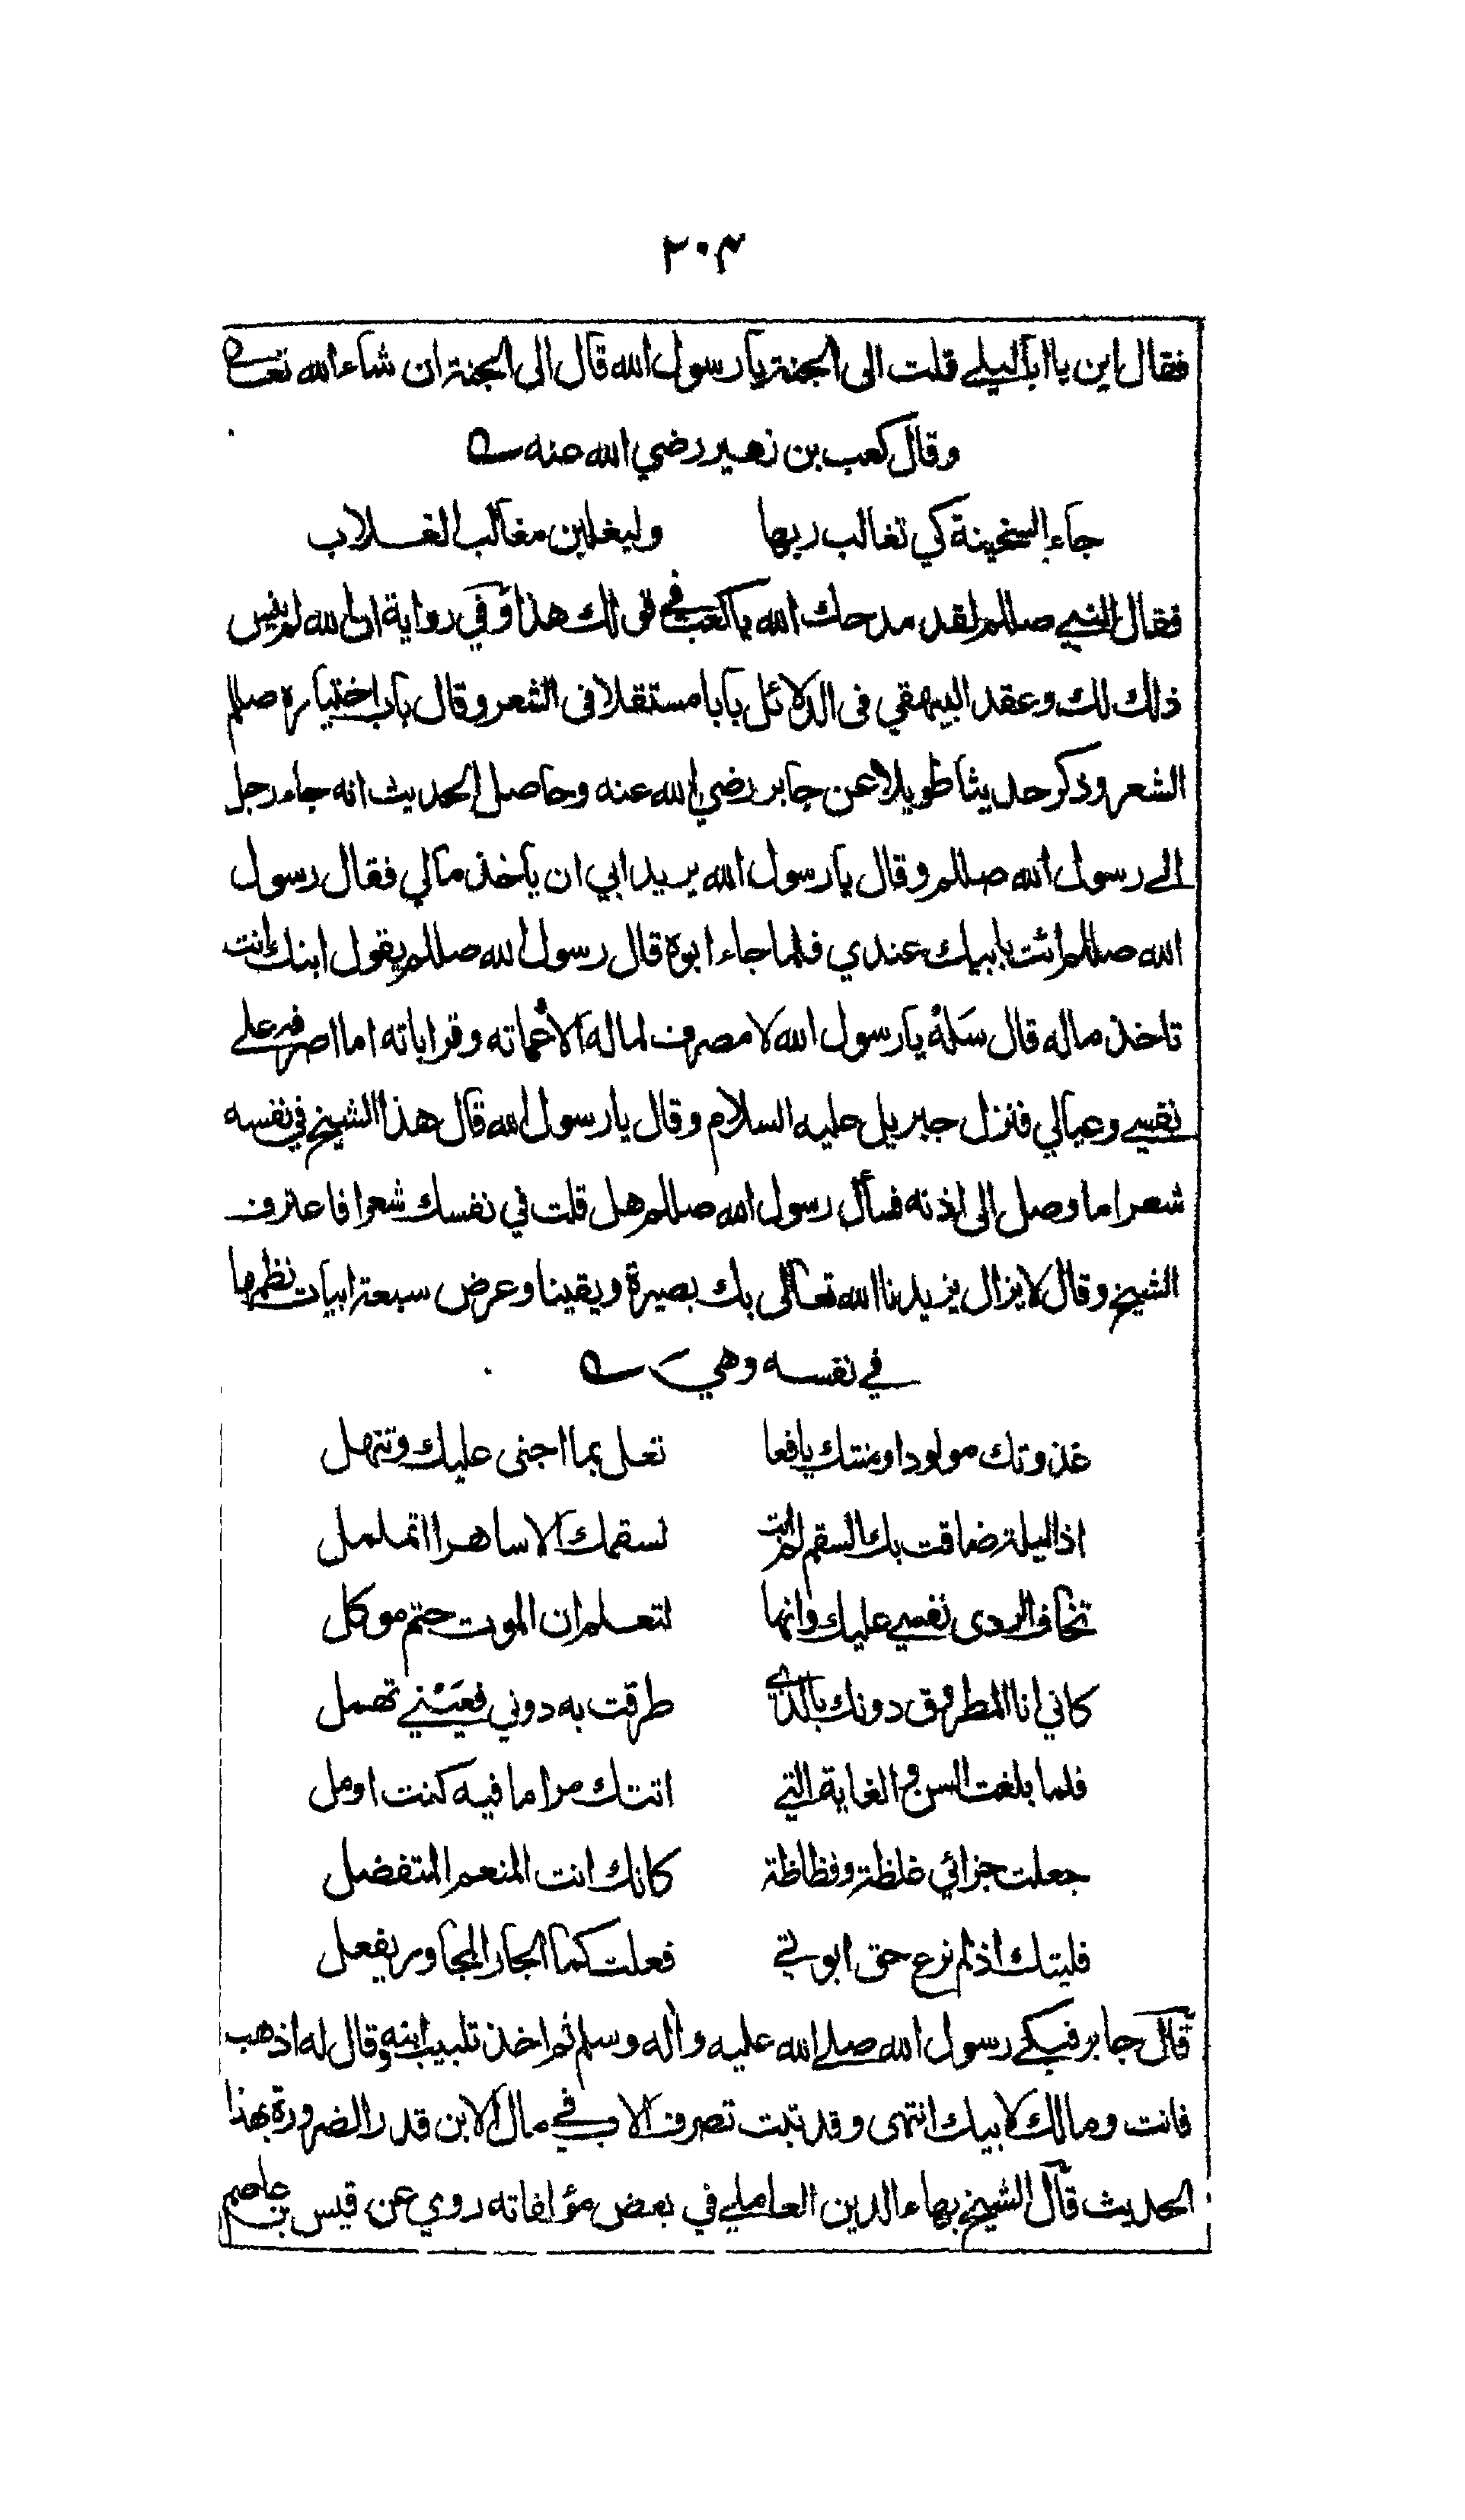 ٢٠٣
فقال اين يا ابا ليلى قلت الى الجنة يا رسول الله قال الى الجنة ان شاء الله تعالى
وقال كعب بن زهير رضي الله عنه
جاء السخينة كي تغالب ربها وليغلبن مغالب الغــلاب
فقال النبي صللم لقد مدحك الله يا كعب في قولك هذا وفي رواية ان الله لم ينس
ذلك لك وعقد البيهقي فى الدلائل بابا مستقلا فى الشعر وقال باب اختياره صللم
الشعر وذكر حديثا طويلا عن جابر رضي الله عنه وحاصل الحديث انه جاء رجل
الى رسول الله صللم وقال يا رسول الله يريد ابي ان ياخذ مالي فقال رسول
الله صللم ائت بابيك عندي فلما جاء ابوه قال رسول الله صللم يقول ابنك انت
تاخذ ماله قال سَلهُ يا رسول الله لا مصرف لماله الا عماته وقراباته اما اصرفه على
نفسي وعيالي فنزل جبريل عليه السلام وقال يا رسول الله قال هذا الشيخ في نفسه
شعرا ما وصل الى اذنه فسأل رسول الله صللم هل قلت في نفسك شعرا فاعترف
الشيخ وقال لا يزال يزيدنا الله تعالى بك بصيرة ويقينا وعرض سبعة ابيات نظمها
في نفسه وهي
غذوتك مولودا ومنتك يافعا تعل بما اجنى عليك وتنهل
اذا ليلة ضاقت بك السقم لم ابت لسقمك الا ساهرا اتململ
تخاف الردى نفسي عليك وانها لتعــلم ان الموت حتم موكل
كاني انا المطروق دونك بالذي طرقت به دوني فعَيْني تهمل
فلما بلغت السن والغاية التي اتتك مراما فيه كنت اومل
جعلت جزائي غلظة وفظاظة كانك انت المنعم المتفضل
فليتك اذ لم نرع حق ابوتي فعلت كما الجار المجاور يفعل
قال جابر فبكى رسول الله صلى الله عليه واله وسلم ثم اخذ تلبيب ابنه وقال له اذهب
فانت ومالك لابيك انتهى وقد ثبت تصرف الاب في مال الابن قدر الضرورة بهذا
الحديث قال الشيخ بهاء الدين العاملي في بعض مؤلفاته روي عن قيس بن عاصم